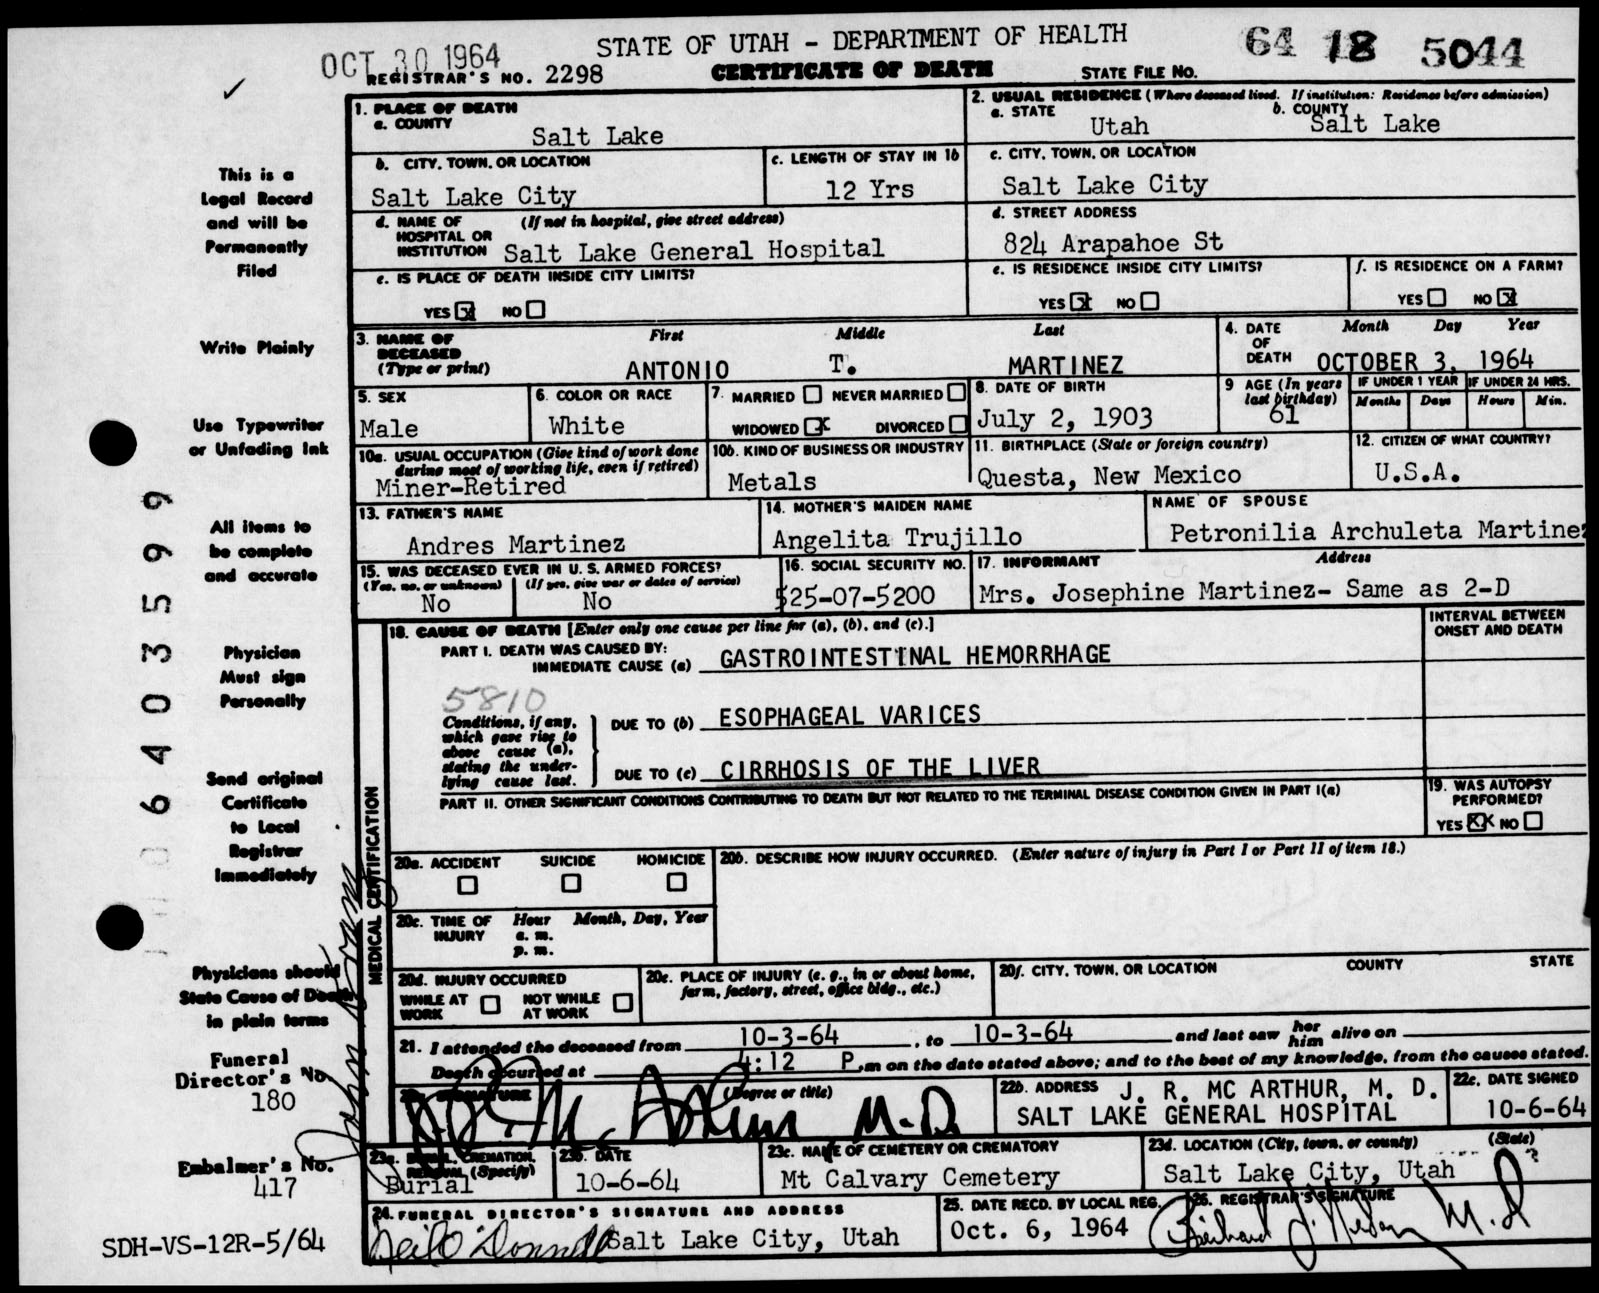 OCT 30 1964
STATE OF UTAH - DEPARTMENT OF HEALTH
64 18 5044
REGISTRAR'S NO. 2298
CERTIFICATE OF DEATH
STATE FILE NO.
1. PLACE OF DEATH
a. COUNTY
Salt Lake
2. USUAL RESIDENCE (Where deceased lived. If institution: Residence before admission)
a. STATE
Utah
b. COUNTY
Salt Lake
b. CITY, TOWN, OR LOCATION
Salt Lake City
c. LENGTH OF STAY IN 1b
12 Yrs
c. CITY, TOWN, OR LOCATION
Salt Lake City
d. NAME OF HOSPITAL OR INSTITUTION
(If not in hospital, give street address)
Salt Lake General Hospital
d. STREET ADDRESS
824 Arapahoe St
e. IS PLACE OF DEATH INSIDE CITY LIMITS?
YES X NO
e. IS RESIDENCE INSIDE CITY LIMITS?
YES X NO
f. IS RESIDENCE ON A FARM?
YES NO X
3. NAME OF DECEASED
(Type or print)
First Middle Last
ANTONIO T. MARTINEZ
4. DATE OF DEATH
Month Day Year
OCTOBER 3, 1964
5. SEX
Male
6. COLOR OR RACE
White
7. MARRIED NEVER MARRIED
WIDOWED X DIVORCED
8. DATE OF BIRTH
July 2, 1903
9 AGE (In years last birthday)
61
IF UNDER 1 YEAR
Months Days
IF UNDER 24 HRS.
Hours Min.
10a. USUAL OCCUPATION (Give kind of work done during most of working life, even if retired)
Miner-Retired
10b. KIND OF BUSINESS OR INDUSTRY
Metals
11. BIRTHPLACE (State or foreign country)
Questa, New Mexico
12. CITIZEN OF WHAT COUNTRY?
U.S.A.
13. FATHER'S NAME
Andres Martinez
14. MOTHER'S MAIDEN NAME
Angelita Trujillo
NAME OF SPOUSE
Petronilia Archuleta Martinez
15. WAS DECEASED EVER IN U. S. ARMED FORCES?
(Yes, no, or unknown)
No
(If yes, give war or dates of service)
No
16. SOCIAL SECURITY NO.
525-07-5200
17. INFORMANT Address
Mrs. Josephine Martinez- Same as 2-D
MEDICAL CERTIFICATION
18. CAUSE OF DEATH [Enter only one cause per line for (a), (b), and (c).]
INTERVAL BETWEEN ONSET AND DEATH
PART I. DEATH WAS CAUSED BY:
IMMEDIATE CAUSE (a) GASTROINTESTINAL HEMORRHAGE
5810
Conditions, if any, which gave rise to above cause (a), stating the underlying cause last.
DUE TO (b) ESOPHAGEAL VARICES
DUE TO (c) CIRRHOSIS OF THE LIVER
PART II. OTHER SIGNIFICANT CONDITIONS CONTRIBUTING TO DEATH BUT NOT RELATED TO THE TERMINAL DISEASE CONDITION GIVEN IN PART I(a)
19. WAS AUTOPSY PERFORMED?
YES XX NO
20a. ACCIDENT SUICIDE HOMICIDE
20b. DESCRIBE HOW INJURY OCCURRED. (Enter nature of injury in Part I or Part II of item 18.)
20c. TIME OF INJURY
Hour Month, Day, Year
a. m.
p. m.
20d. INJURY OCCURRED
WHILE AT WORK
NOT WHILE AT WORK
20e. PLACE OF INJURY (e. g., in or about home, farm, factory, street, office bldg., etc.)
20f. CITY, TOWN, OR LOCATION COUNTY STATE
21. I attended the deceased from 10-3-64, to 10-3-64 and last saw her him alive on
Death occurred at 4:12 P.m on the date stated above; and to the best of my knowledge, from the causes stated.
SIGNATURE
(Degree or title)
M.D.
22b. ADDRESS J. R. MC ARTHUR, M. D.
SALT LAKE GENERAL HOSPITAL
22c. DATE SIGNED
10-6-64
23a. BURIAL, CREMATION, REMOVAL (Specify)
Burial
23b. DATE
10-6-64
23c. NAME OF CEMETERY OR CREMATORY
Mt Calvary Cemetery
23d. LOCATION (City, town, or county) (State)
Salt Lake City, Utah
24. FUNERAL DIRECTOR'S SIGNATURE AND ADDRESS
Neil O'Donnell Salt Lake City, Utah
25. DATE RECD. BY LOCAL REG.
Oct. 6, 1964
26. REGISTRAR'S SIGNATURE
M.D
This is a
Legal Record
and will be
Permanently
Filed
Write Plainly
Use Typewriter
or Unfading Ink
All items to
be complete
and accurate
Physician
Must sign
Personally
Send original
Certificate
to Local
Registrar
Immediately
Physicians should
State Cause of Death
in plain terms
Funeral
Director's No.
180
Embalmer's No.
417
SDH-VS-12R-5/64
0 6 4 0 3 5 9 9
John